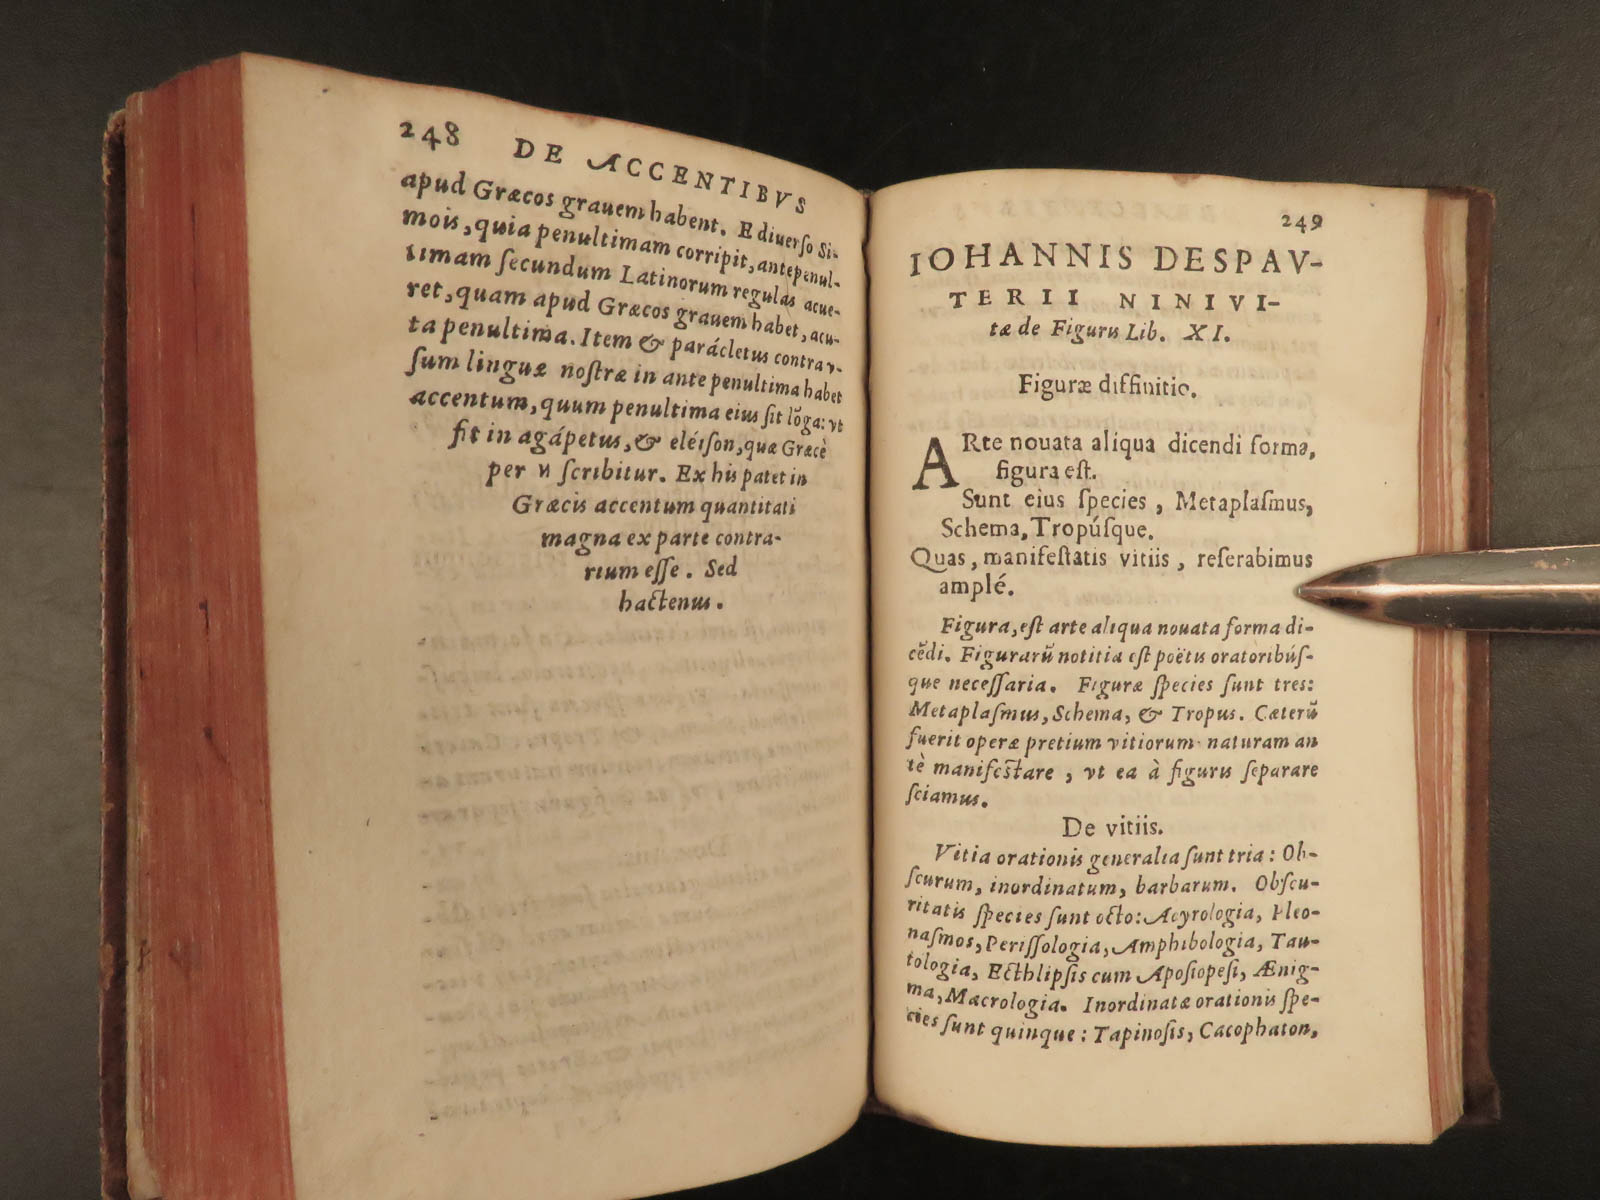 248 DE ACCENTIBVS
apud Græcos grauem habent. E diuerſo Si-
mois, quia penultimam corripit, antepenul-
timam ſecundum Latinorum regulas acue-
ret, quam apud Græcos grauem habet, acu-
ta penultima. Item & parácletus contra v-
ſum linguæ noſtræ in ante penultima habet
accentum, quum penultima eius ſit lõga: vt
fit in agápetus, & eléiſon, quæ Græcè
per η ſcribitur. Ex his patet in
Græcis accentum quantitati
magna ex parte contra-
rium eſſe. Sed
hactenus.
249
IOHANNIS DESPAV-
TERII NINIVI-
tæ de Figuris Lib. XI.
Figuræ diffinitio.
ARte nouata aliqua dicendi forma,
figura eſt.
Sunt eius ſpecies, Metaplaſmus,
Schema, Tropúſque.
Quas, manifeſtatis vitiis, reſerabimus
amplé.
Figura, eſt arte aliqua nouata forma di-
cẽdi. Figurarũ notitia eſt poëtis oratoribúſ-
que neceſſaria. Figuræ ſpecies ſunt tres:
Metaplaſmus, Schema, & Tropus. Cæterũ
fuerit operæ pretium vitiorum naturam an
tè manifeſtare, vt ea à figuris ſeparare
ſciamus.
De vitiis.
Vitia orationis generalia ſunt tria: Ob-
ſcurum, inordinatum, barbarum. Obſcu-
ritatis ſpecies ſunt octo: Acyrologia, Pleo-
naſmos, Periſſologia, Amphibologia, Tau-
tologia, Ecthlipſis cum Apoſiopeſi, Ænig-
ma, Macrologia. Inordinatæ orationis ſpe-
cies ſunt quinque: Tapinoſis, Cacophaton,